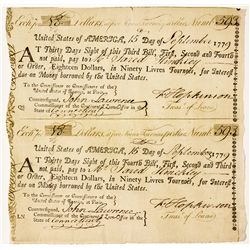 Exch: for 18 Dollars,
United States of AMERICA, 15 Day of September 1779
AT Thirty Days Sight of this Third Bill, First, Second and Fourth
not paid, pay to
or Order, Eighteen Dollars, in Ninety Livres Tournois, for Interest
due on Money borrowed by the United States.
To the Commissioner or Commissioners of the
United States of America at Paris
Countersigned,
Commissioner of the Continental Loan-Office in the
State of Connecticut
F Hopkinson
Treas.r of Loans
Exch: for 18 Dollars,
United States of AMERICA, 15 Day of September 1779
AT Thirty Days Sight of this Fourth Bill, First, Second and Third
not paid, pay to
or Order, Eighteen Dollars, in Ninety Livres Tournois, for Interest
due on Money borrowed by the United States.
To the Commissioner or Commissioners of the
United States of America at Paris
Countersigned,
Commissioner of the Continental Loan-Office in the
State of Connecticut
F Hopkinson
Treas.r of Loans